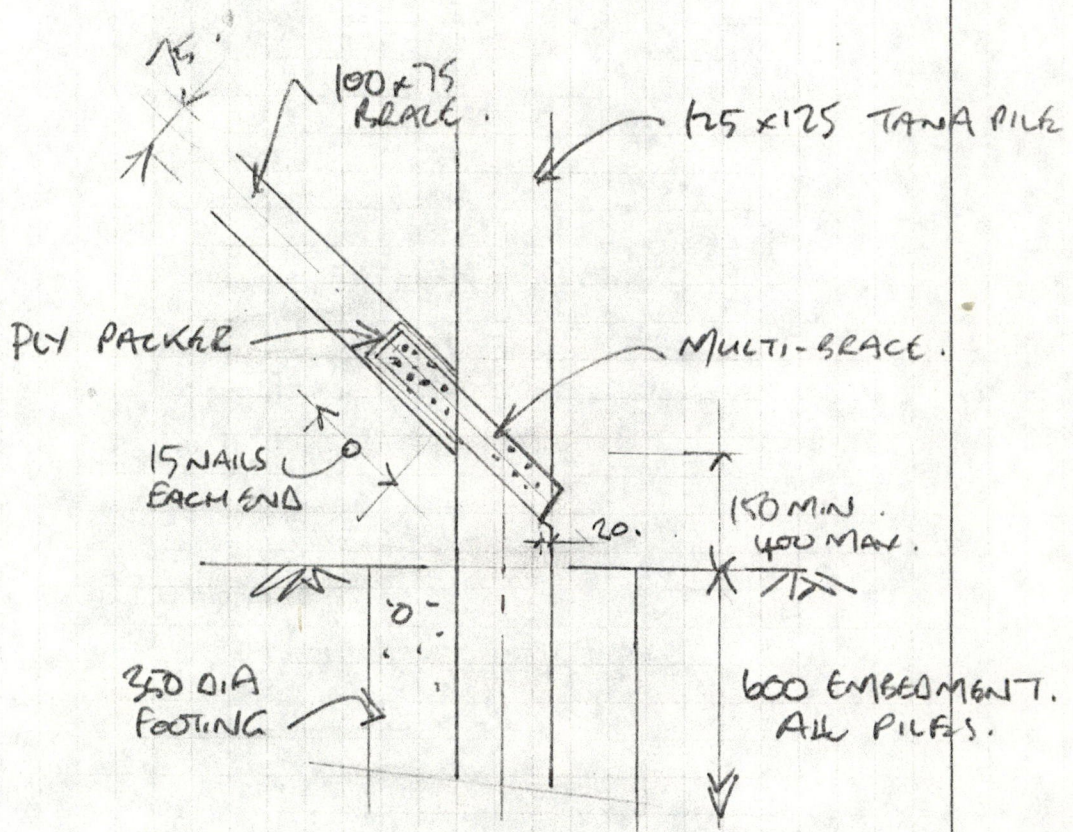 75
100x75
BRACE.
125x125 TANA PILE
PLY PACKER
MULTI-BRACE.
15 NAILS
EACH END
150 MIN.
400 MAX.
20.
350 DIA
FOOTING
600 EMBEDMENT.
ALL PILES.